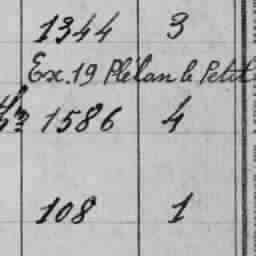 1344 3
Ex. 19 Plélan le Petit
1586 4
108 1